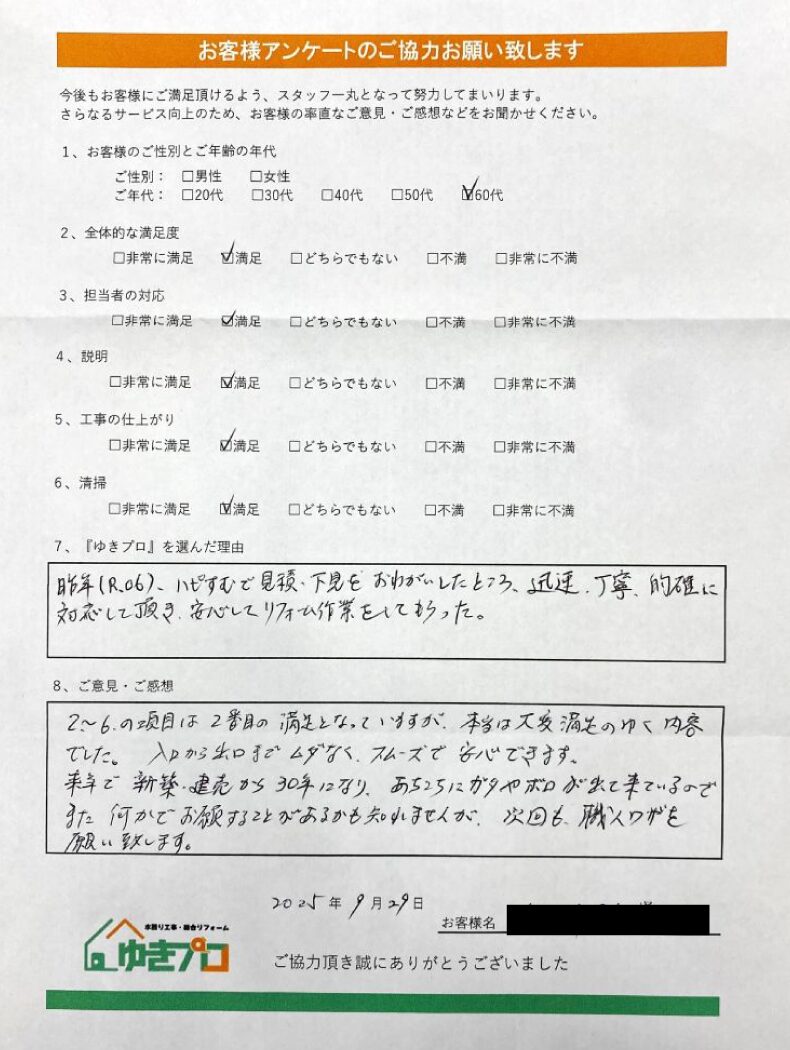 お客様アンケートのご協力お願い致します
今後もお客様にご満足頂けるよう、スタッフ一丸となって努力してまいります。
さらなるサービス向上のため、お客様の率直なご意見・ご感想などをお聞かせください。
1、お客様のご性別とご年齢の年代
ご性別： □男性 □女性
ご年代： □20代 □30代 □40代 □50代 ☑60代
2、全体的な満足度
□非常に満足 ☑満足 □どちらでもない □不満 □非常に不満
3、担当者の対応
□非常に満足 ☑満足 □どちらでもない □不満 □非常に不満
4、説明
□非常に満足 ☑満足 □どちらでもない □不満 □非常に不満
5、工事の仕上がり
□非常に満足 ☑満足 □どちらでもない □不満 □非常に不満
6、清掃
□非常に満足 ☑満足 □どちらでもない □不満 □非常に不満
7、『ゆきプロ』を選んだ理由
昨年(R.06)、ハピすむで見積・下見をおねがいしたところ、迅速、丁寧、的確に
対応して頂き、安心してリフォーム作業をしてもらった。
8、ご意見・ご感想
2〜6.の項目は2番目の満足となっていますが、本当は大変満足のゆく内容
でした。 入口から出口までムダなく、スムーズで安心できます。
来年で新築・建売から30年になり、あちこちにガタやボロが出て来ているので
また何かでお願することがあるかも知れませんが、次回も、職人ワザを
願い致します。
2025年9月29日
お客様名
水廻り工事・総合リフォーム
ゆきプロ
ご協力頂き誠にありがとうございました